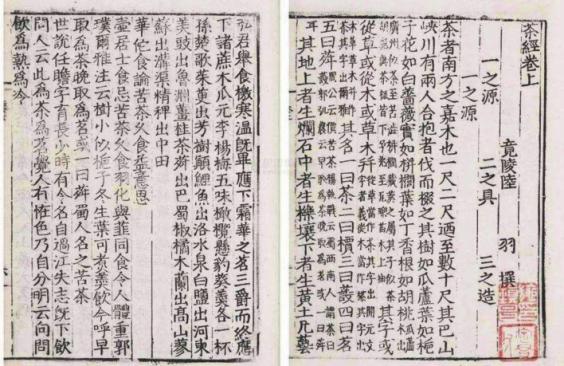 茶經卷上
竟陵陸 羽 撰
一之源 二之具 三之造
一之源
茶者南方之嘉木也一尺二尺迺至數十尺其巴山
峽川有兩人合抱者伐而掇之其樹如瓜蘆葉如梔
子花如白薔薇實如栟櫚葉如丁香根如胡桃
其字或
從草或從木或草木并
其名一曰茶二曰檟三曰蔎四曰茗
五曰荈
其地上者生爛石中者生櫟壤下者生黃土凡藝
弘君舉食檄寒溫既畢應下霜華之茗三爵而終應
下諸蔗木瓜元李楊梅五味橄欖懸豹葵羹各一杯
孫楚歌茱萸出芳樹顛鯉魚出洛水泉白鹽出河東
美豉出魯淵薑桂茶荈出巴蜀椒橘木蘭出高山蓼
蘇出溝渠精稗出中田
華佗食論苦茶久食益意思
壺居士食忌苦茶久食羽化與韭同食令人體重郭
璞爾雅注云樹小似梔子冬生葉可煮羹飲今呼早
取為茶晚取為茗或一曰荈蜀人名之苦茶
世說任瞻字育長少時有令名自過江失志既下飲
問人云此為茶為茗覺人有怪色乃自分明云向問
飲為熱為冷